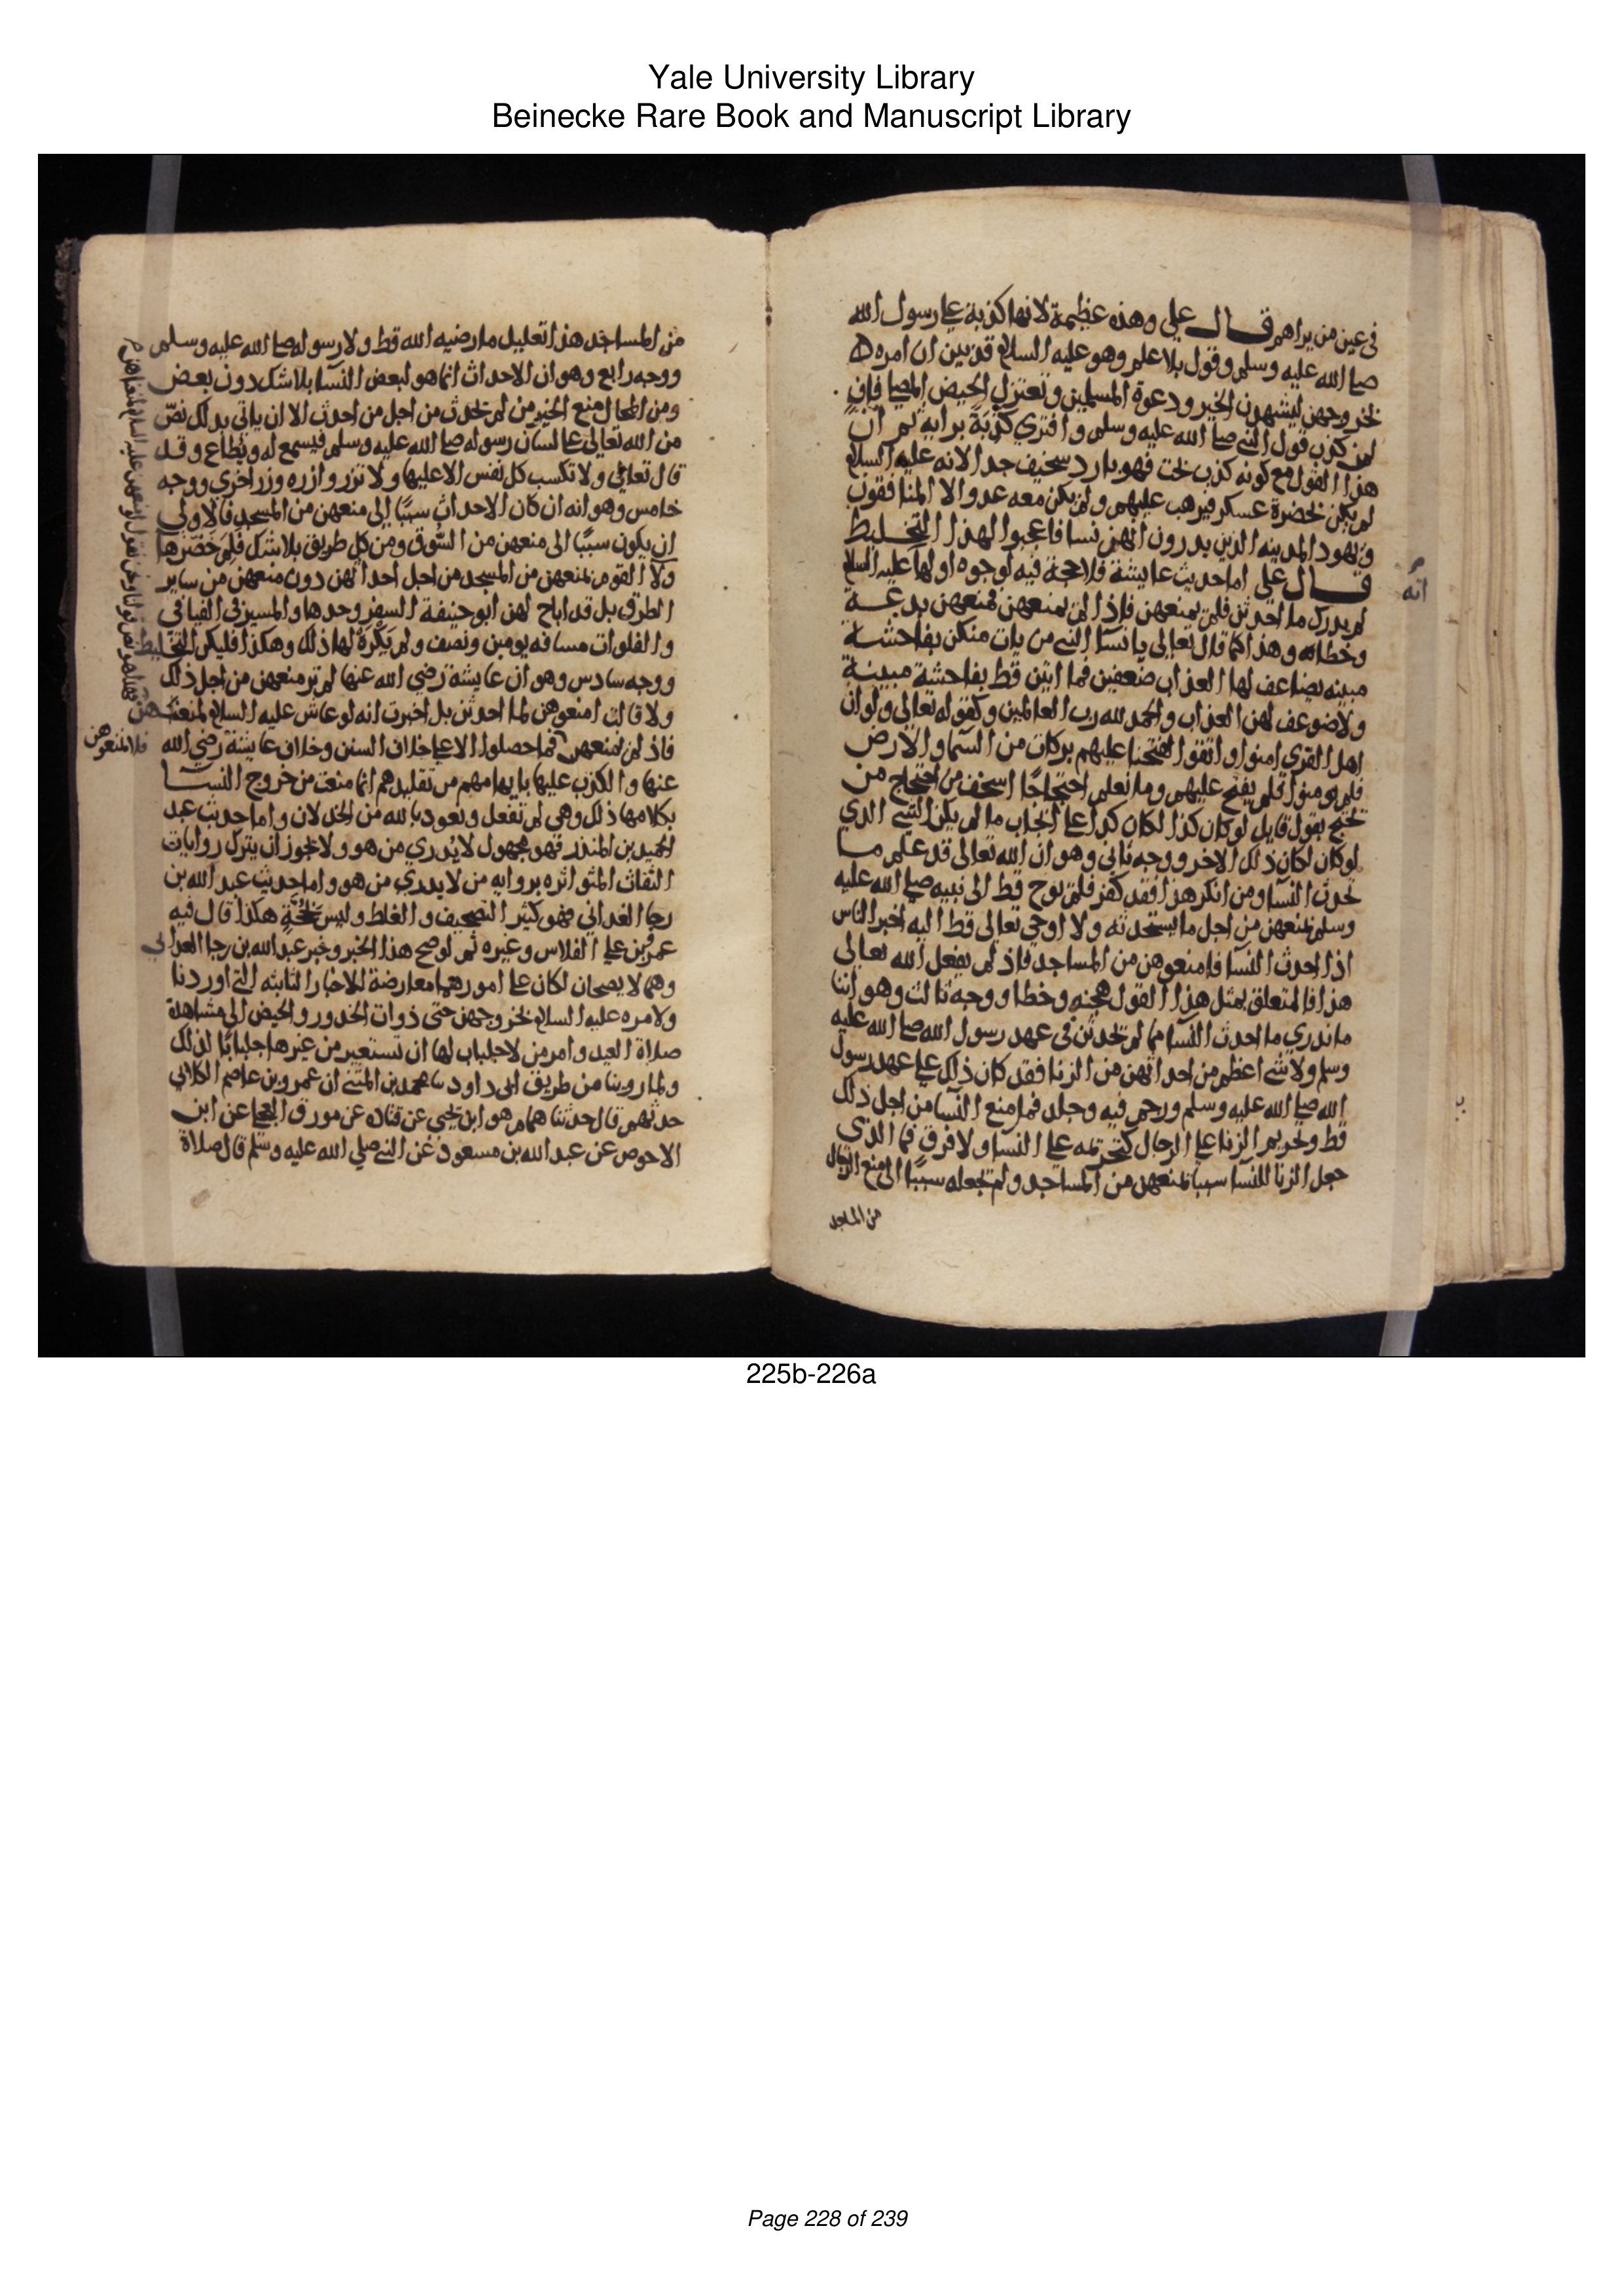 Yale University Library
Beinecke Rare Book and Manuscript Library
في عين من يراهم قال علي وهذه عظيمة لانها كذبة علي رسول الله
صلي الله عليه وسلم وقول بلا علم وهو عليه السلام قد بين ان امره
بخروجهن ليشهدن الخير ودعوة المسلمين وتعتزل الحيض المصلي فاف
لمن كذب قول النبي صلي الله عليه وسلم وافتري كذبة برايه ثم ان
هذا القول مع كونه كذب بحت فهو بارد سخيف جدا لانه عليه السلام
لم يكن بحضرة عسكر فيرهب عليهم ولم يكن معه عدو الا المنافقون
ويهود المدينه الذين يدرون انهن نسا فاعجبوا لهذا التخليط
قال علي اما حديث عايشة فلا حجة فيه لوجوه اولها عليه السلام
انه
لم يدرك ما احدثن فلم يمنعهن فاذا لم يمنعهن فمنعهن بدعة
وخطا وهذا كما قال تعالي يا نسا النبي من يات منكن بفاحشة
مبينه يضاعف لها العذاب ضعفين فما اتين قط بفاحشة مبينة
ولا ضوعف لهن العذاب والحمد لله رب العالمين وكقوله تعالي ولو ان
اهل القري امنوا واتقوا لفتحنا عليهم بركات من السما والارض
فلم يومنوا فلم يفتح عليهم وما نعلم احتجاجا اسخف من احتجاج من
يحتج بقول قايل لو كان كذا لكان كذا علي ايجاب ما لم يكن الشي الذي
لو كان لكان ذلك الاخر ووجه ثاني وهو ان الله تعالي قد علم ما
تحدث النسا ومن انكر هذا فقد كفر فلم يوح قط الي نبيه صلي الله عليه
وسلم بمنعهن من اجل ما يستحدثنه ولا اوحي تعالي قط اليه اخبر الناس
اذا احدث النسا فامنعوهن من المساجد فاذ لم يفعل الله تعالي
هذا فالمتعلق بمثل هذا القول هجنه وخطا ووجه ثالث وهو اننا
ما ندري ما احدث النسا مما لم يحدثن في عهد رسول الله صلي الله عليه
وسلم ولا شي اعظم من احداثهن من الزنا فقد كان ذلك علي عهد رسول
الله صلي الله عليه وسلم ورجم فيه وجلد فما منع النسا من اجل ذلك
قط وتحريم الزنا علي الرجال كتحريمه علي النسا ولا فرق فما الذي
جعل الزنا للنسا سببا لمنعهن من المساجد ولم يجعله سببا الي منع الرجال
من المساجد
من المساجد هذا تعليل ما رضيه الله قط ولا رسوله صلي الله عليه وسلم
ووجه رابع وهو ان الاحداث انما هو لبعض النسا بلا شك دون بعض
ومن المحال منع الخير من لم تحدث من اجل من احدث الا ان ياتي بذلك نص
من الله تعالي علي لسان رسوله صلي الله عليه وسلم فيسمع له ويطاع وقد
قال تعالي ولا تكسب كل نفس الا عليها ولا تزر وازره وزر اخري ووجه
خامس وهو انه ان كان الاحداث سببا الي منعهن من المسجد فالاولي
ان يكون سببا الي منعهن من السوق ومن كل طريق بلا شك فلم خص هاولا
القوم منعهن من المسجد من اجل احداثهن دون منعهن من ساير
الطرق بل قد اباح لهن ابو حنيفة السفر وحدها والمسير في الفيافي
والفلوات مسافه يومين ونصف ولم يكره لها ذلك وهكذا فليكن التخليط
ووجه سادس وهو ان عايشة رضي الله عنها لم تر منعهن من اجل ذلك
ولا قالت امنعوهن لما احدثن بل اخبرت انه لو عاش عليه السلام لمنعهن
فاذ لم يمنعهن فما حصلوا الا علي خلاف السنن وخلاف عايشة رضي الله
فلا تمنعوهن
عنها والكذب عليها بايهامهم من تقليدهم انما منعت من خروج النسا
بكلامها ذلك وهي لم تفعل ونعوذ بالله من الخذلان واما حديث عبد
الحميد بن المنذر فهو مجهول لا يدري من هو ولا يجوز ان يترك روايات
الثقات المتواتره بروايه من لا يدري من هو واما حديث عبد الله بن
رجا الغداني فهو كثير التصحيف والغلط وليس بحجة هكذا قال فيه
عمرو بن علي الفلاس وغيره ثم لو صح هذا الخبر وخبر عبد الله بن رجا الغداني
وهما لا يصحان لكان علي امورهما معارضة للاخبار الثابته التي اوردنا
ولامره عليه السلام بخروجهن حتي ذوات الخدور والحيض الي مشاهدة
صلاة العيد وامر من لا جلباب لها ان تستعير من غيرها جلبابا لذلك
ولما روينا من طريق ابي داود نا محمد بن المثني ان عمرو بن عاصم الكلابي
حدثهم قال حدثنا همام هو ابن يحيي عن قتاده عن مورق العجلي عن ابي
الاحوص عن عبد الله بن مسعود عن النبي صلي الله عليه وسلم قال صلاة
225b-226a
Page 228 of 239